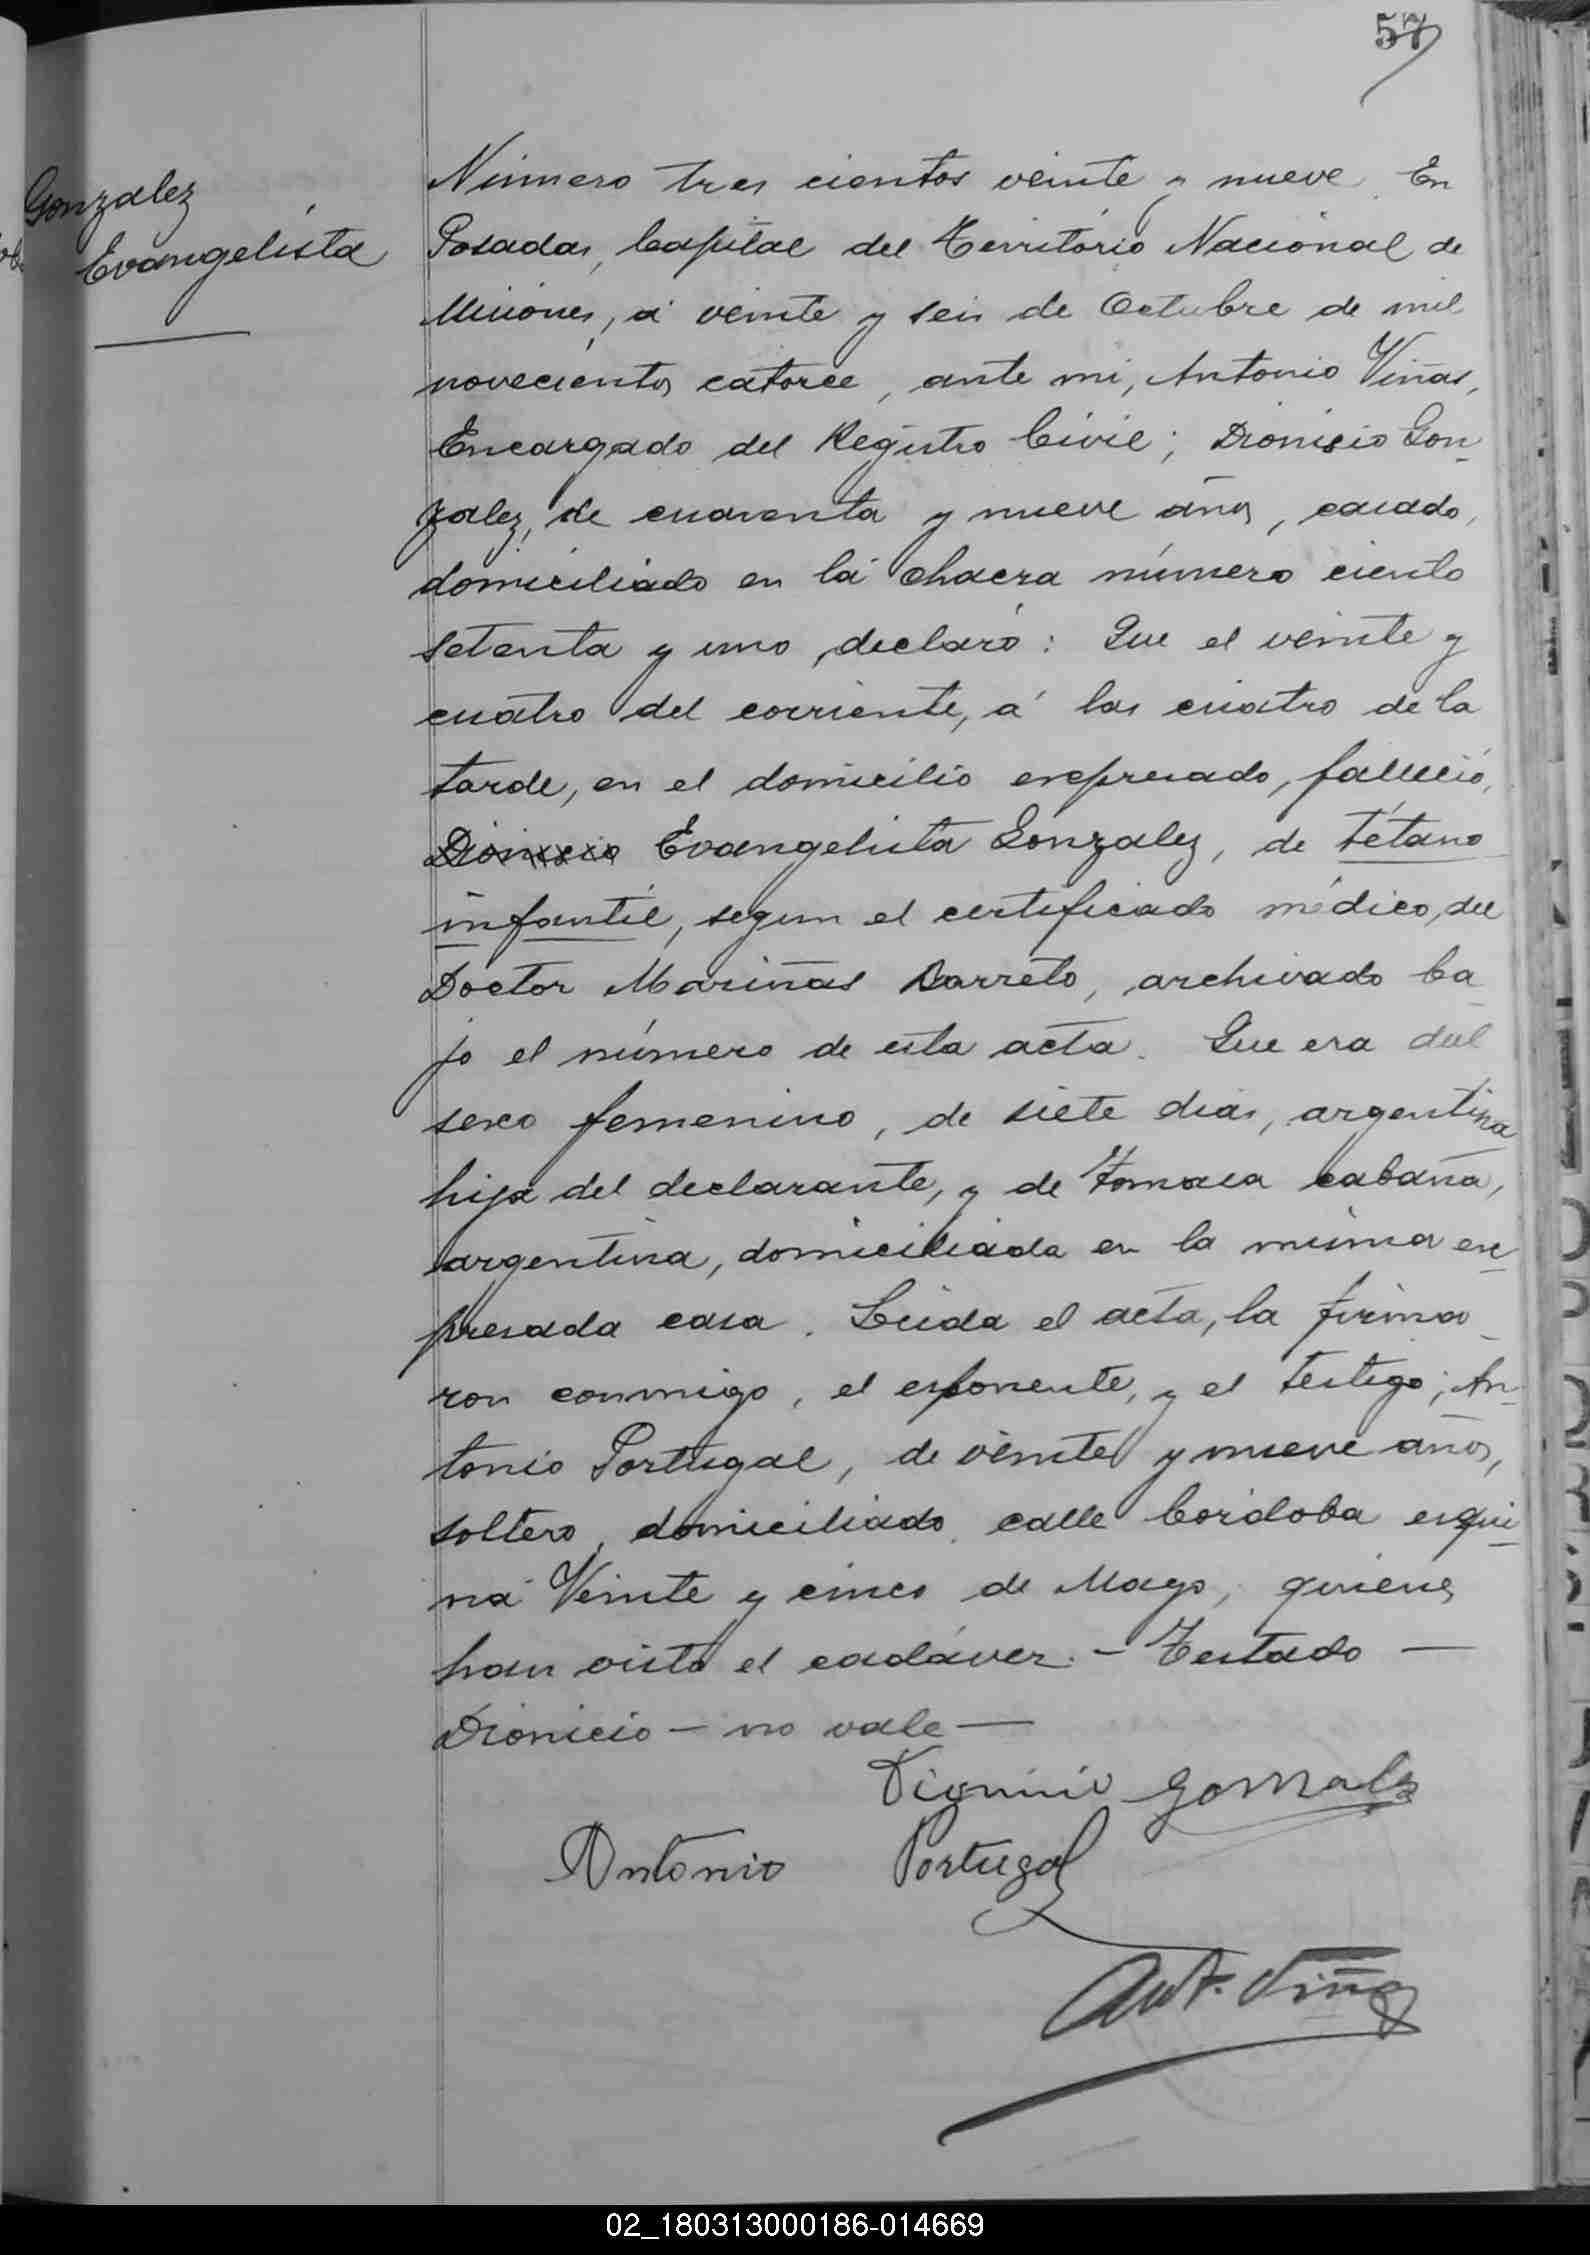 57
Gonzalez
Evangelista
Número tres cientos veinte y nueve. En
Posadas, Capital del Territorio Nacional de
Misiones, á veinte y seis de Octubre de mil
novecientos catorce, ante mi, Antonio Viñas,
Encargado del Registro Civil; Dionisio Gon-
zalez, de cuarenta y nueve años, casado,
domiciliado en la chacra número ciento
setenta y uno, declaró: Que el veinte y
cuatro del corriente, á las cuatro de la
tarde, en el domicilio expresado, falleció,
Dionicio Evangelista Gonzalez, de tétano
infantil, segun el certificado médico, del
Doctor Mariñas Barreto, archivado ba-
jo el número de esta acta. Que era del
sexo femenino, de siete dias, argentina
hija del declarante, y de Tomasa cabaña,
argentina, domiciliada en la misma ex-
presada casa. Leida el acta, la firma-
ron conmigo, el exponente, y el testigo; An-
tonio Portugal, de veinte y nueve años,
soltero, domiciliado calle Cordoba esqui-
na Veinte y cinco de Mayo, quienes
han visto el cadáver. - Testado -
Dionicio - no vale -
Dionicio Gonzalez
Antonio Portugal
Ant. Viñas
02_180313000186-014669